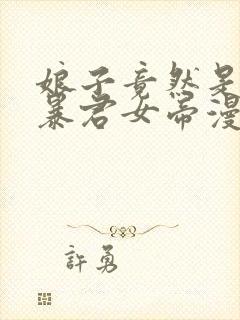 娘子竟然是
暴君女帝漫
許勇